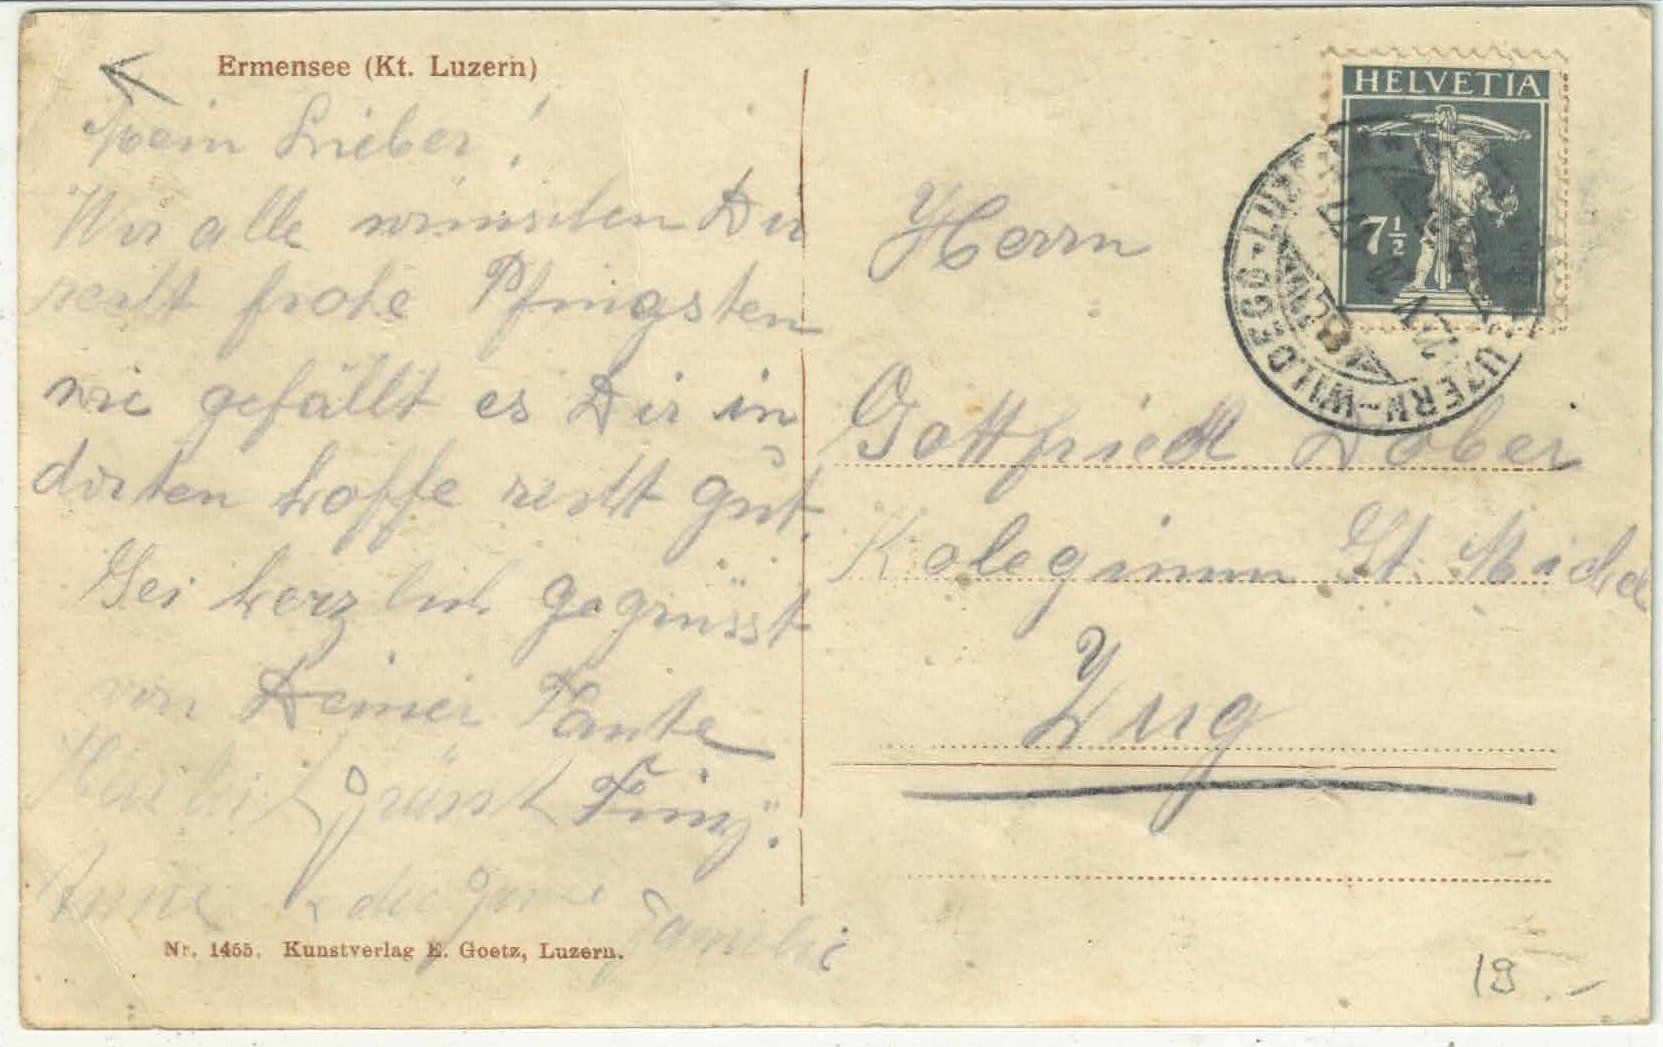 Ermensee (Kt. Luzern)
Mein Lieber!
Wir alle wünschen Dir
recht frohe Pfingsten
wie gefällt es Dir in
dorten hoffe recht gut.
Sei herzlich gegrüsst
von Deiner Tante
grüsst
Anna & die ganze Familie
Nr. 1455. Kunstverlag E. Goetz, Luzern.
HELVETIA
7½
LUZERN-WILDEGG-LUZERN
Herrn
Gottfried Dober
Kolegimm St. Michael
Zug
19.-